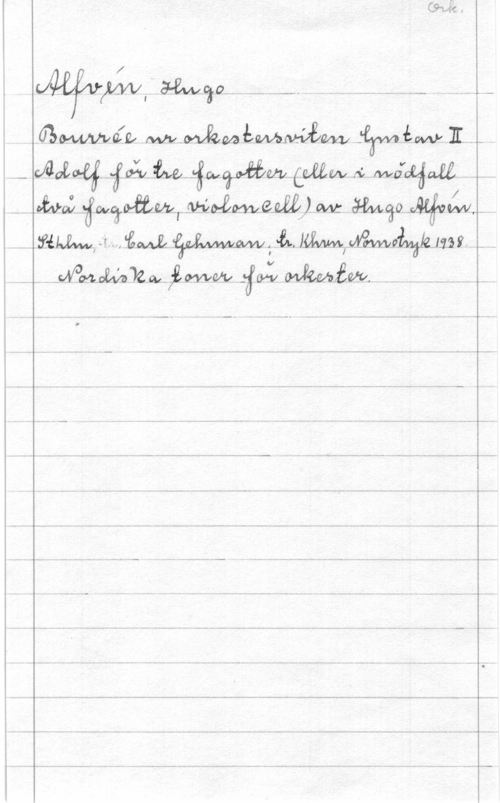 Ork.
Alfvén, Hugo
Bourrée ur orkestersviten Gustav II
Adolf för tre fagotter (eller i nödfall
två fagotter, violoncell) av Hugo Alfvén.
Sthlm, Carl Gehrman; tr. Khvn, Nornotryk 1938.
Nordiska toner för orkester.